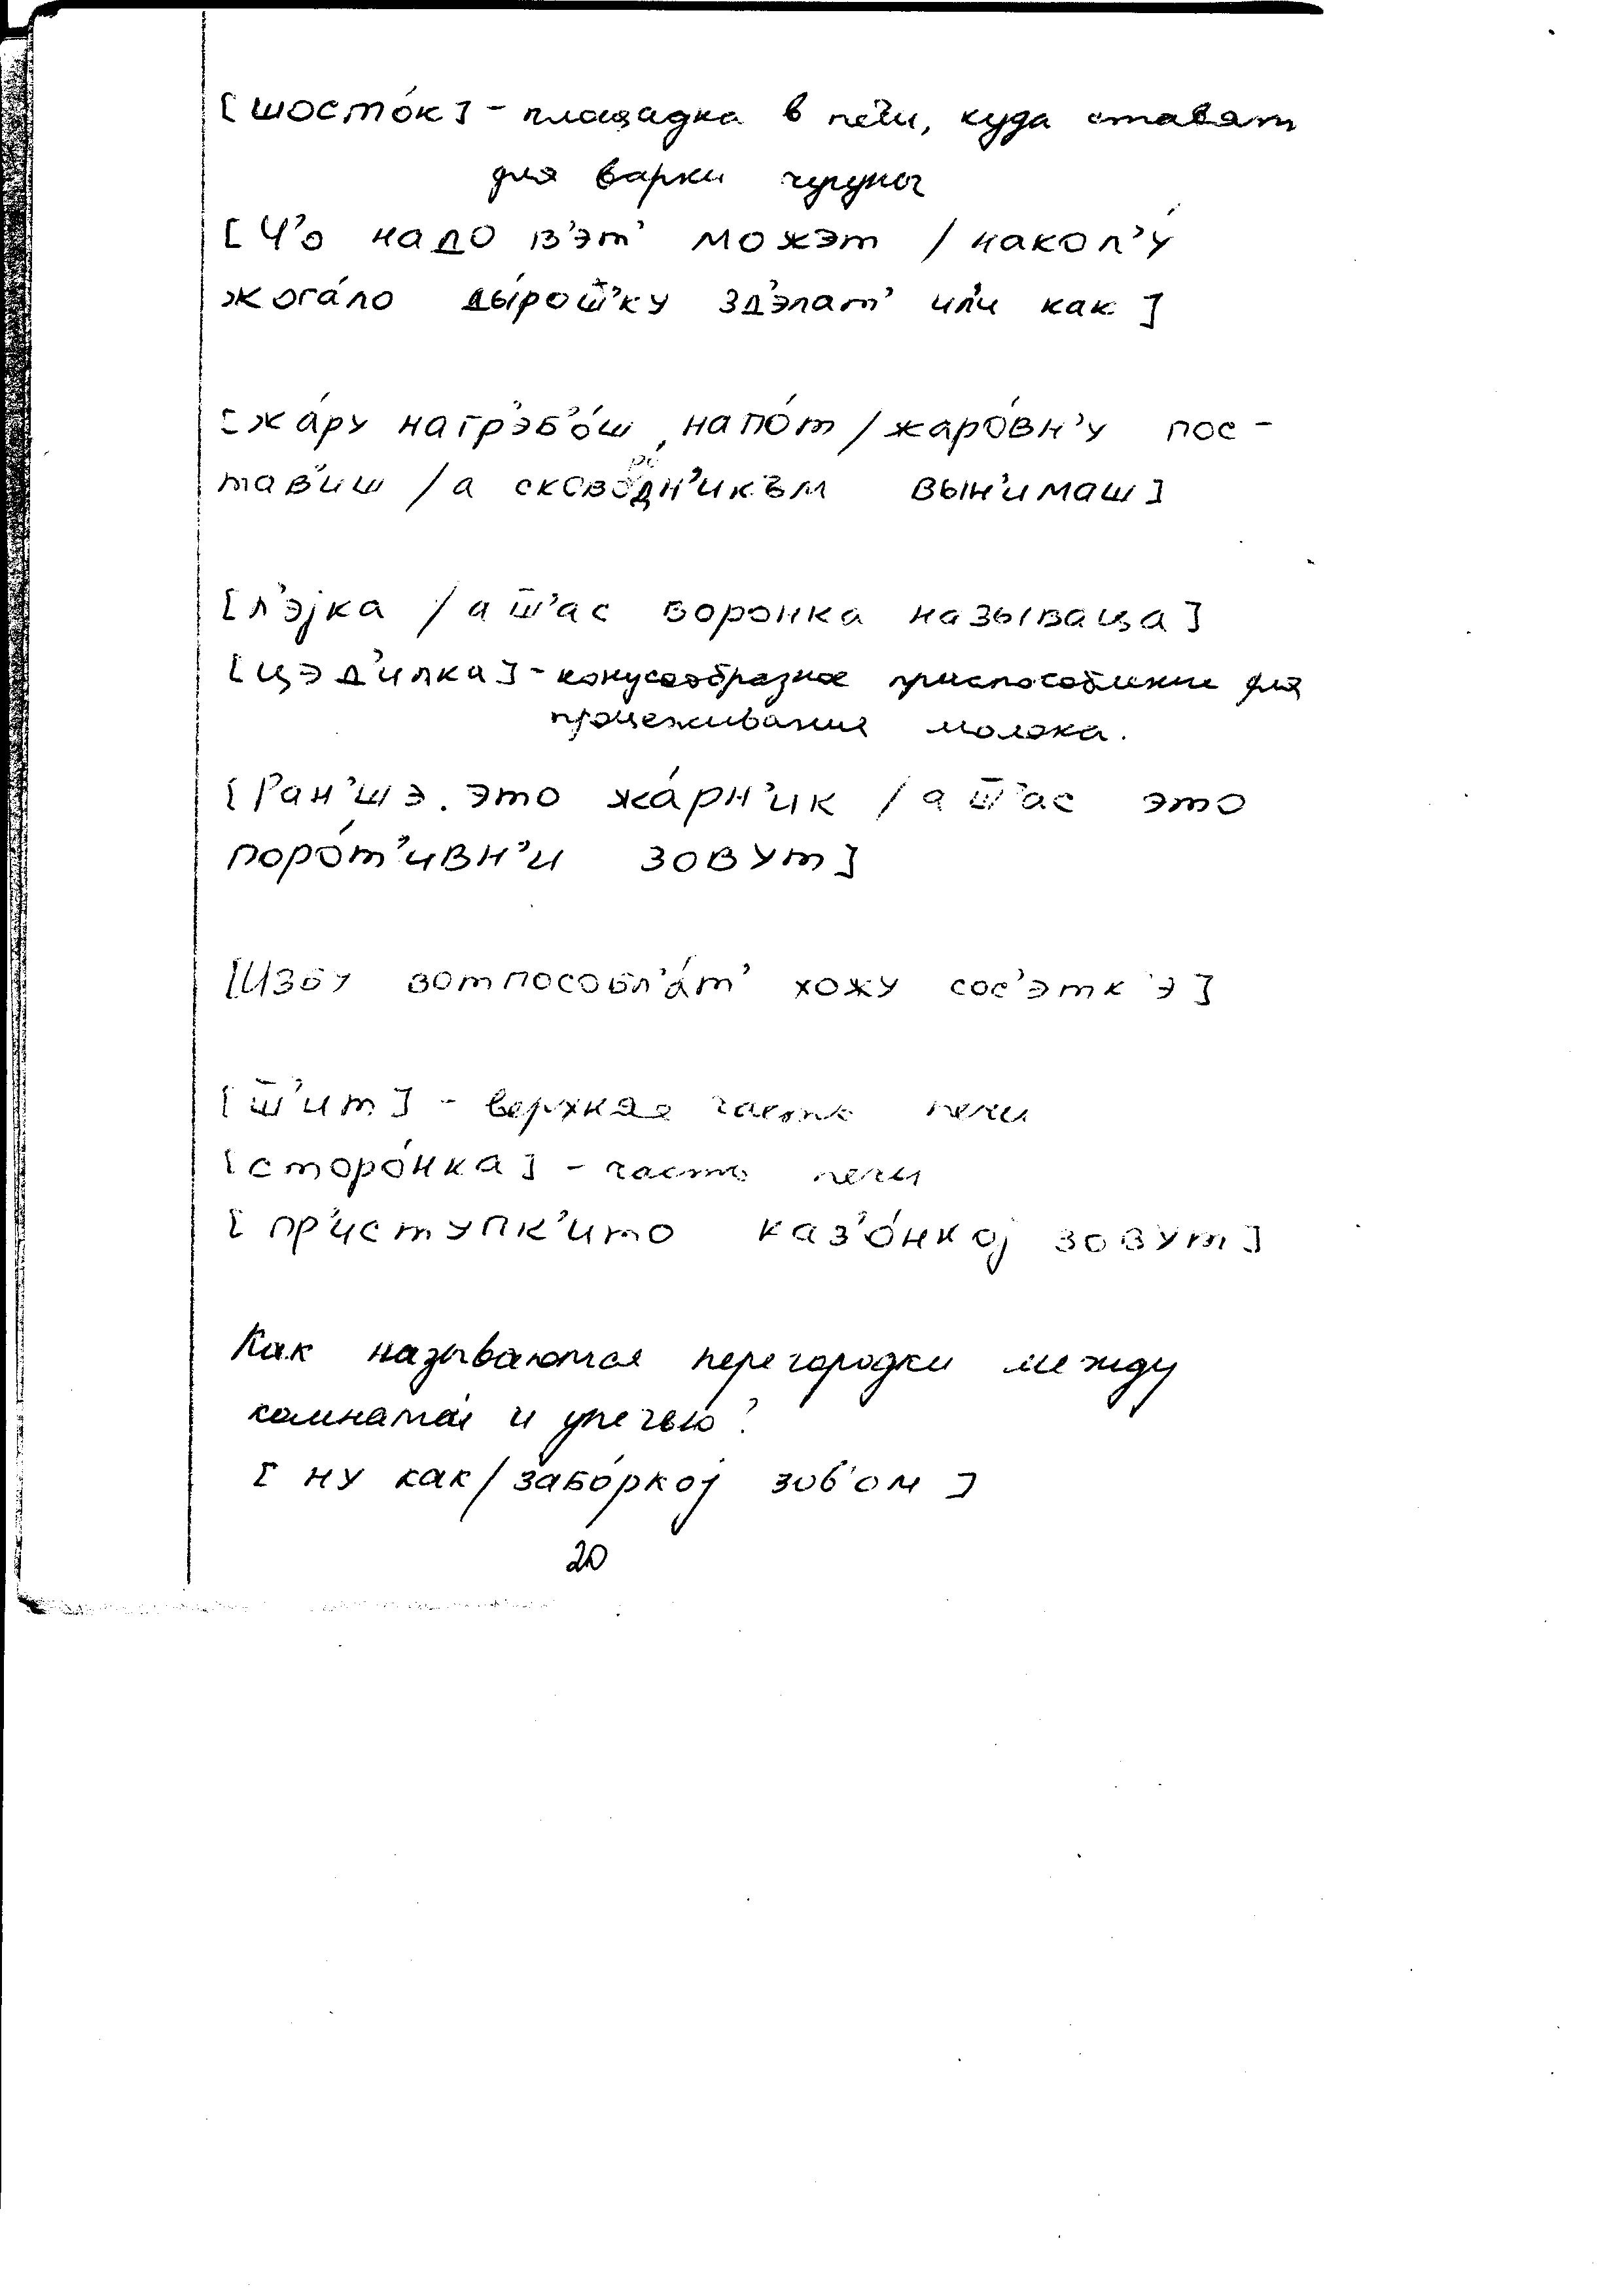 [шосто́к] - площадка в печи, куда ставят
для варки чугуны
[Ч’о надо в’эт’ можэт / накол’у́
жога́ло ды́рош̅’ку зд’элат’ ил’и как]
[жа́ру нагр’эб’о́ш, напо́т / жаро́вн’у пос-
тав’иш / а сковоро́дн’икъм вын’имаш]
[л’эjка / а ш̅’ас воронка называца]
[цэд’илка] - конусообразное приспособление для
процеживания молока.
[Ран’шэ. это жа́рн’ик / а ш̅’ас это
поро́т’ивн’и зовут]
[Избу вотпособл’а́т’ хожу сос’этк’э]
[ш̅’ит] - верхняя часть печи
[сторо́нка] - часть печи
[пр’иступк’ито каз’о́нкоj зовут]
Как называются перегородки между
комнатой и упечью?
[ну как / забо́ркоj зов’ом]
20